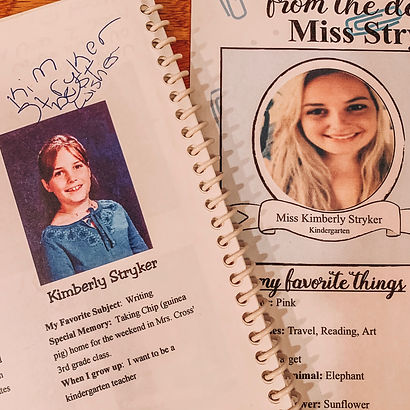 Kim
Stryker
Kimberly Stryker
My Favorite Subject: Writing
Special Memory: Taking Chip (guinea
pig) home for the weekend in Mrs. Cross'
3rd grade class.
When I grow up: I want to be a
kindergarten teacher
from the de
Miss Stry
Miss Kimberly Stryker
Kindergarten
my favorite things
: Pink
es: Travel, Reading, Art
get
nimal: Elephant
wer: Sunflower